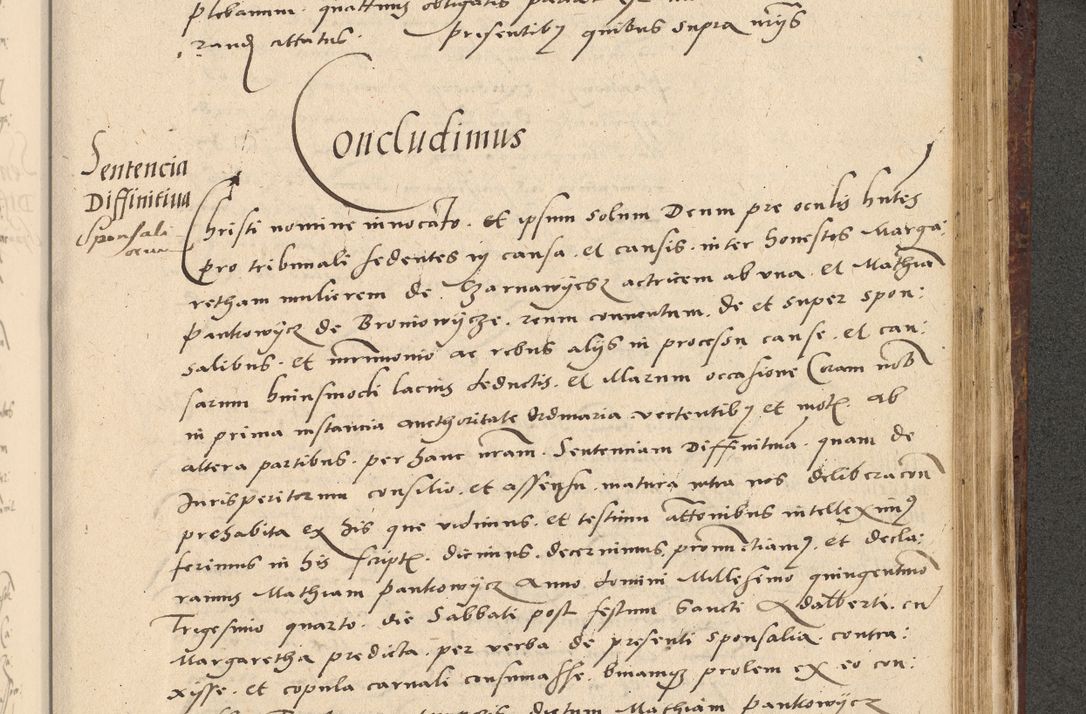 plebanum quattuor obligatis pariter
rand citatus. Presentib9 quibus supra nr̃ijs
Concludimus
Sentencia
Diffinitiua
Sponsali
Christi nomine inuocato. et ipsum solum Deum pre oculis hñtes
pro tribunali sedentes in causa. et causis. inter honestos Marga:
retham mulierem de Czarnawyesz actricem ab vna. et Mathiã
Pankowycz de Broniowycze. reum conuentum. de et super spon:
salibus. et mr̃imonio ac rebus alijs in processu cause. et cau:
sarum huiusmodi lacius deductis. et illarum occasione Coram nob
in prima instancia aucthoritate Ordinaria vertentib9 et mot. ab
altera partibus. per hanc nrãm. Sentenciam Diffinitiuã. quam de
Jurisperitorum consilio. et assensu. matura intra nos deliberacoñ
prehabita ex his que vidimus. et testium att̃onibus intelleximus
ferimus in his script. dicimus. decernimus, pronũctiam9. et decla:
ramus Mathiam Pankowycz Anno domini Millesimo quingentmo
Trigesimo quarto. die Sabbati post festum Sancti Adalberti. cũ
Margaretha predicta. per verba de presenti sponsalia. contra:
xisse. et copula carnali consumasse. binamq3 prolem ex eo con:
dictum Mathiam Pankowycz